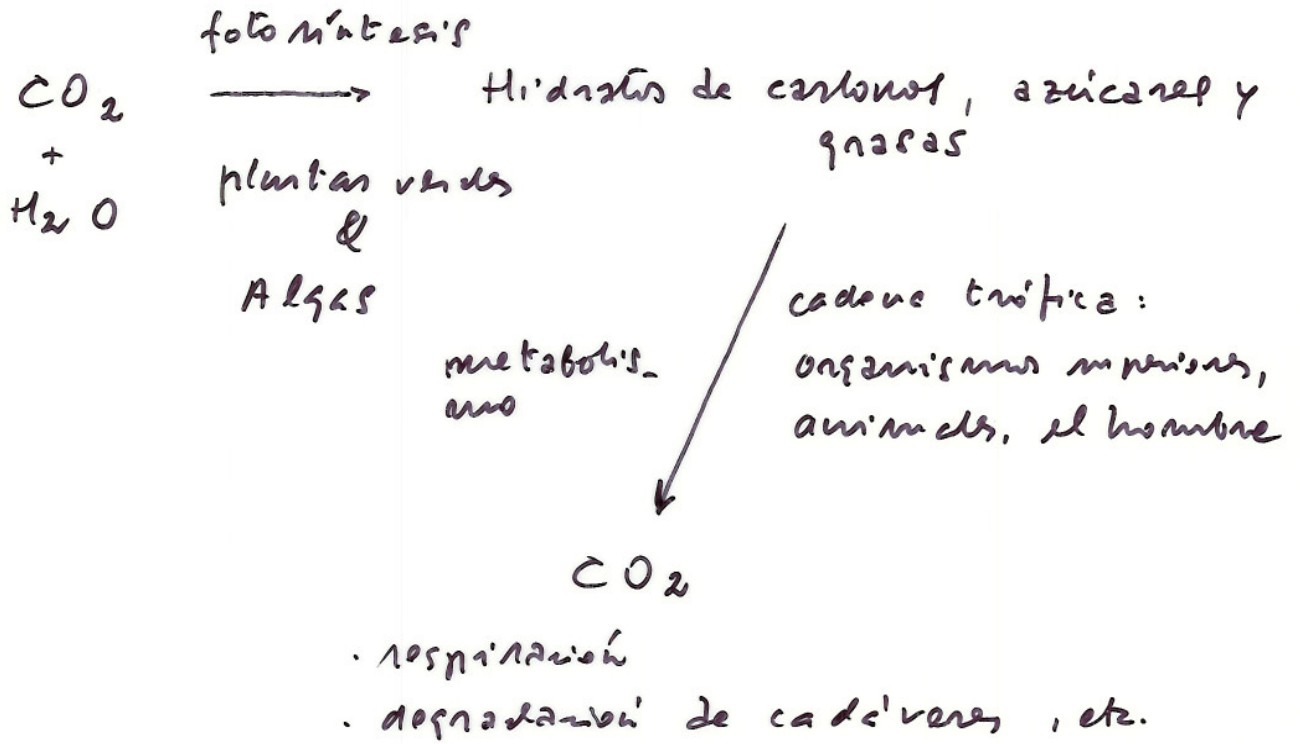 fotosíntesis
CO2 → Hidratos de carbonos, azúcares y
grasas
+
H2O
plantas verdes
&
Algas
metabolis-
mo
cadena trófica:
organismos superiores,
animales, el hombre
CO2
· respiración
· degradación de cadáveres, etc.